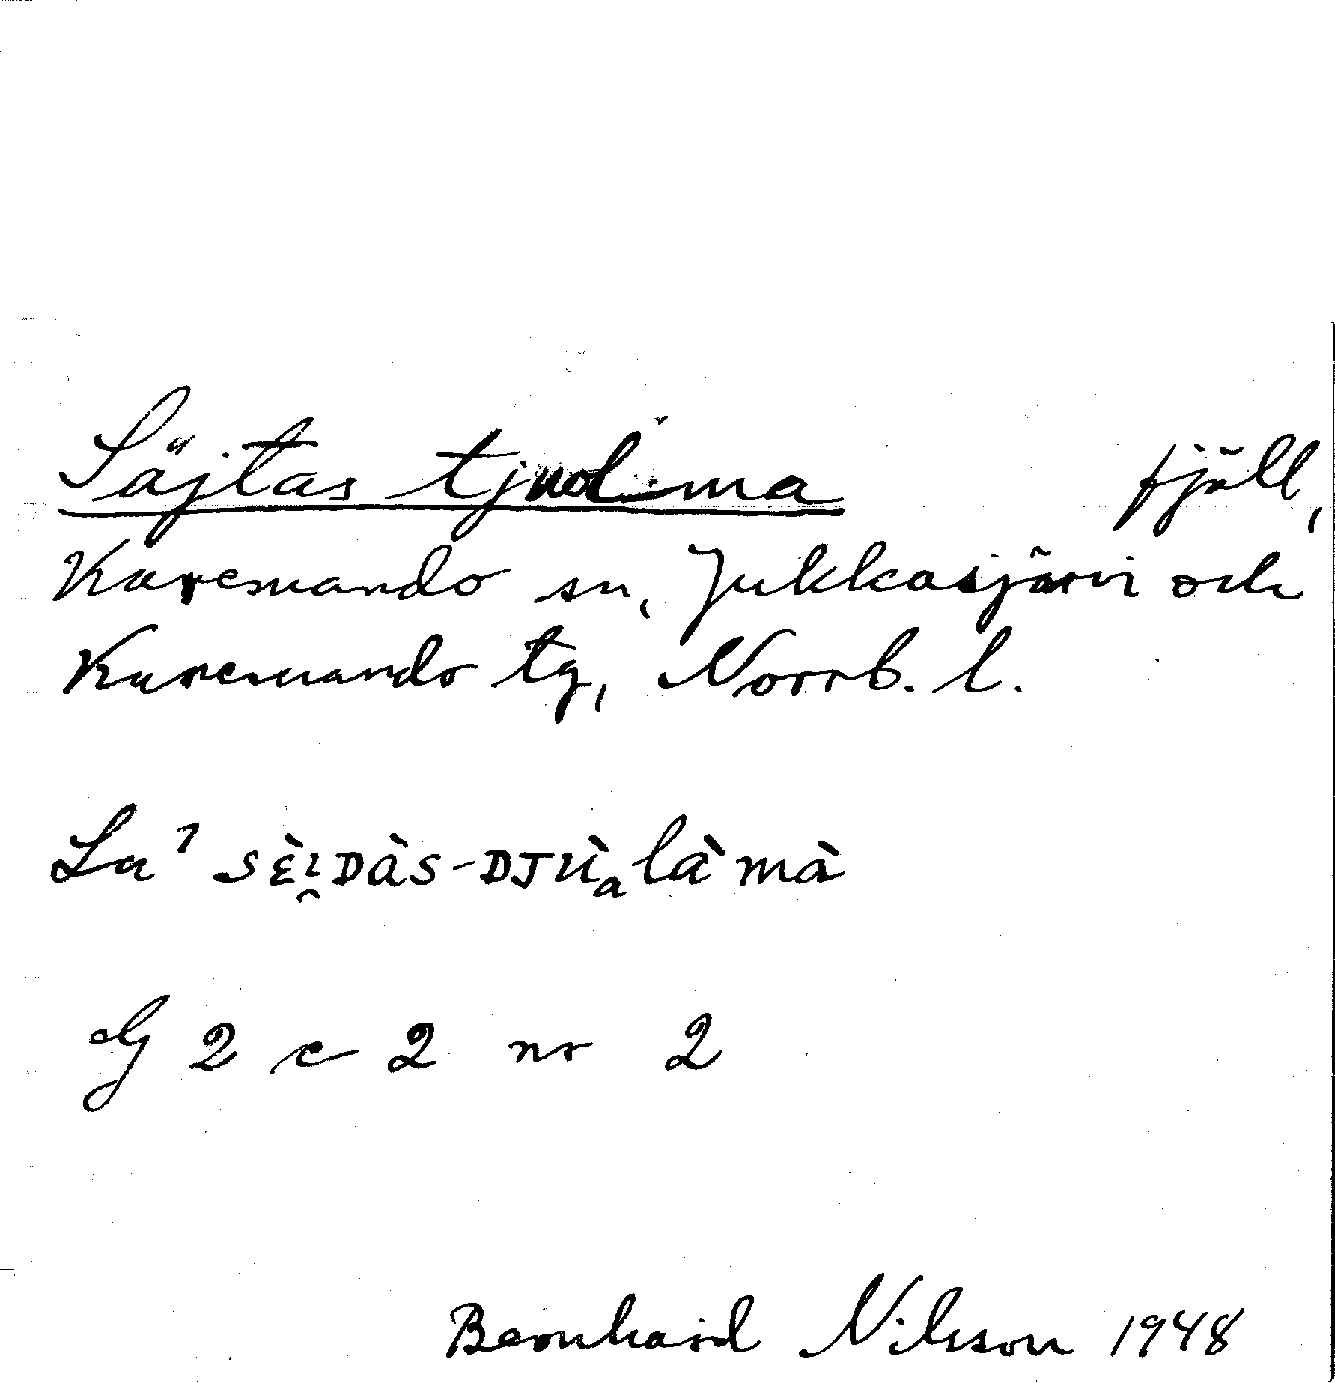 Säjtas tjuolma fjäll,
Karesuando sn, Jukkasjärvi och
Karesuando tg, Norrb. l.
La' sὲi̯DàS-DJùₐlàmà
G 2 c 2 nr 2
Bernhard Nilsson 1948